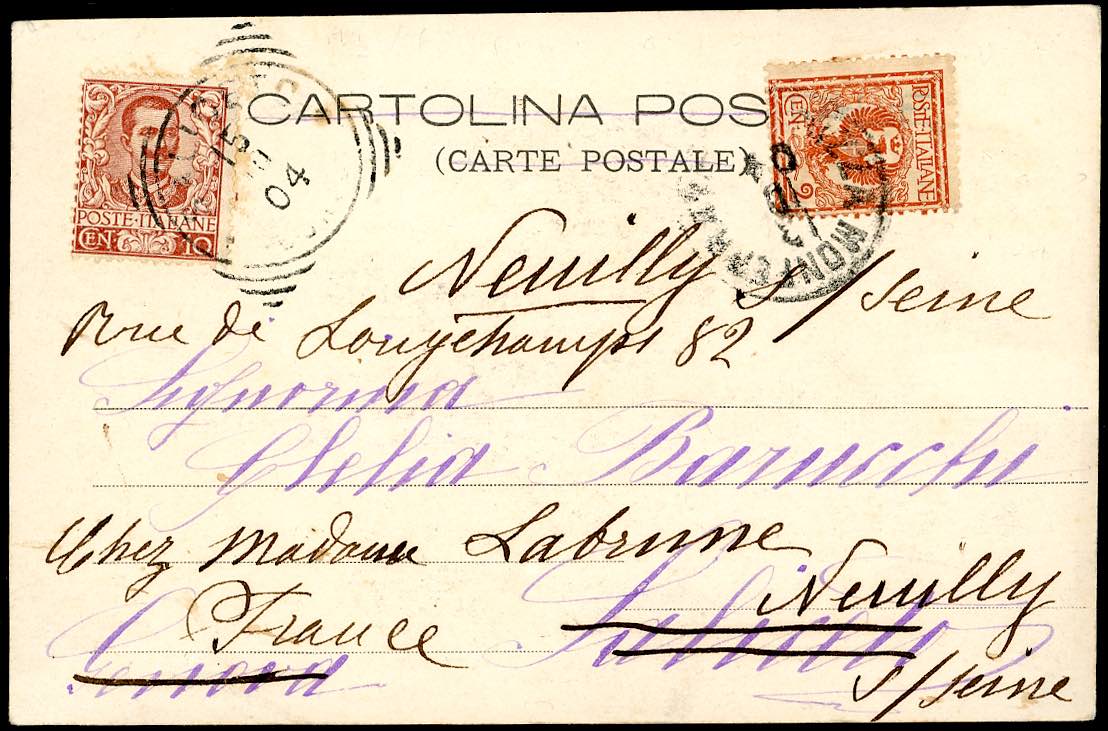 CARTOLINA POS
(CARTE POSTALE)
POSTE·ITALIANE
CEN. 10
POSTE·ITALIANE
CEN. 2
15
04
Neuilly s/Seine
Rue de Longchamps 82
Signorina
Clelia Barucchi
Chez Madame Labrune
Neuilly
France
Genova
s/Seine